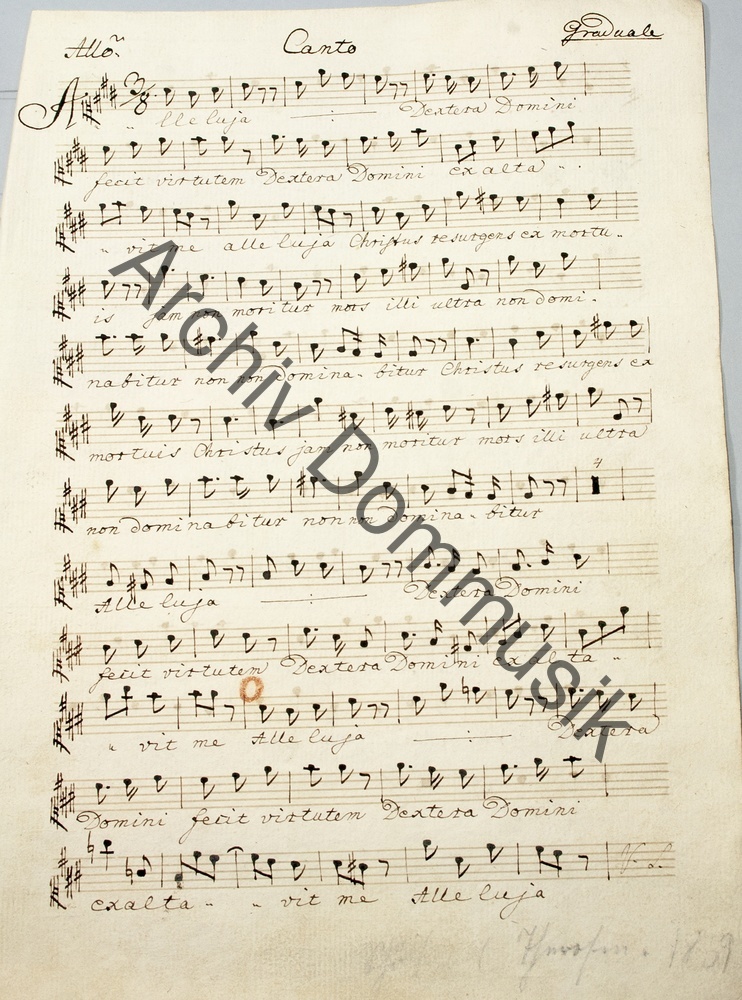 Allo. Canto Graduale
Alleluja Dextera Domini
fecit virtutem Dextera Domini exalta
vit me alleluja Christus resurgens ex mortu-
is jam non moritur mors illi ultra non domi-
nabitur non non domina-bitur Christus resurgens ex
mortuis Christus jam non moritur mors illi ultra
4
non dominabitur non non domina-bitur
Alleluja Dextera Domini
fecit virtutem Dextera Domini exalta
vit me Alleluja Dextera
Domini fecit virtutem Dextera Domini
exalta vit me Alleluja
Archiv Dommusik